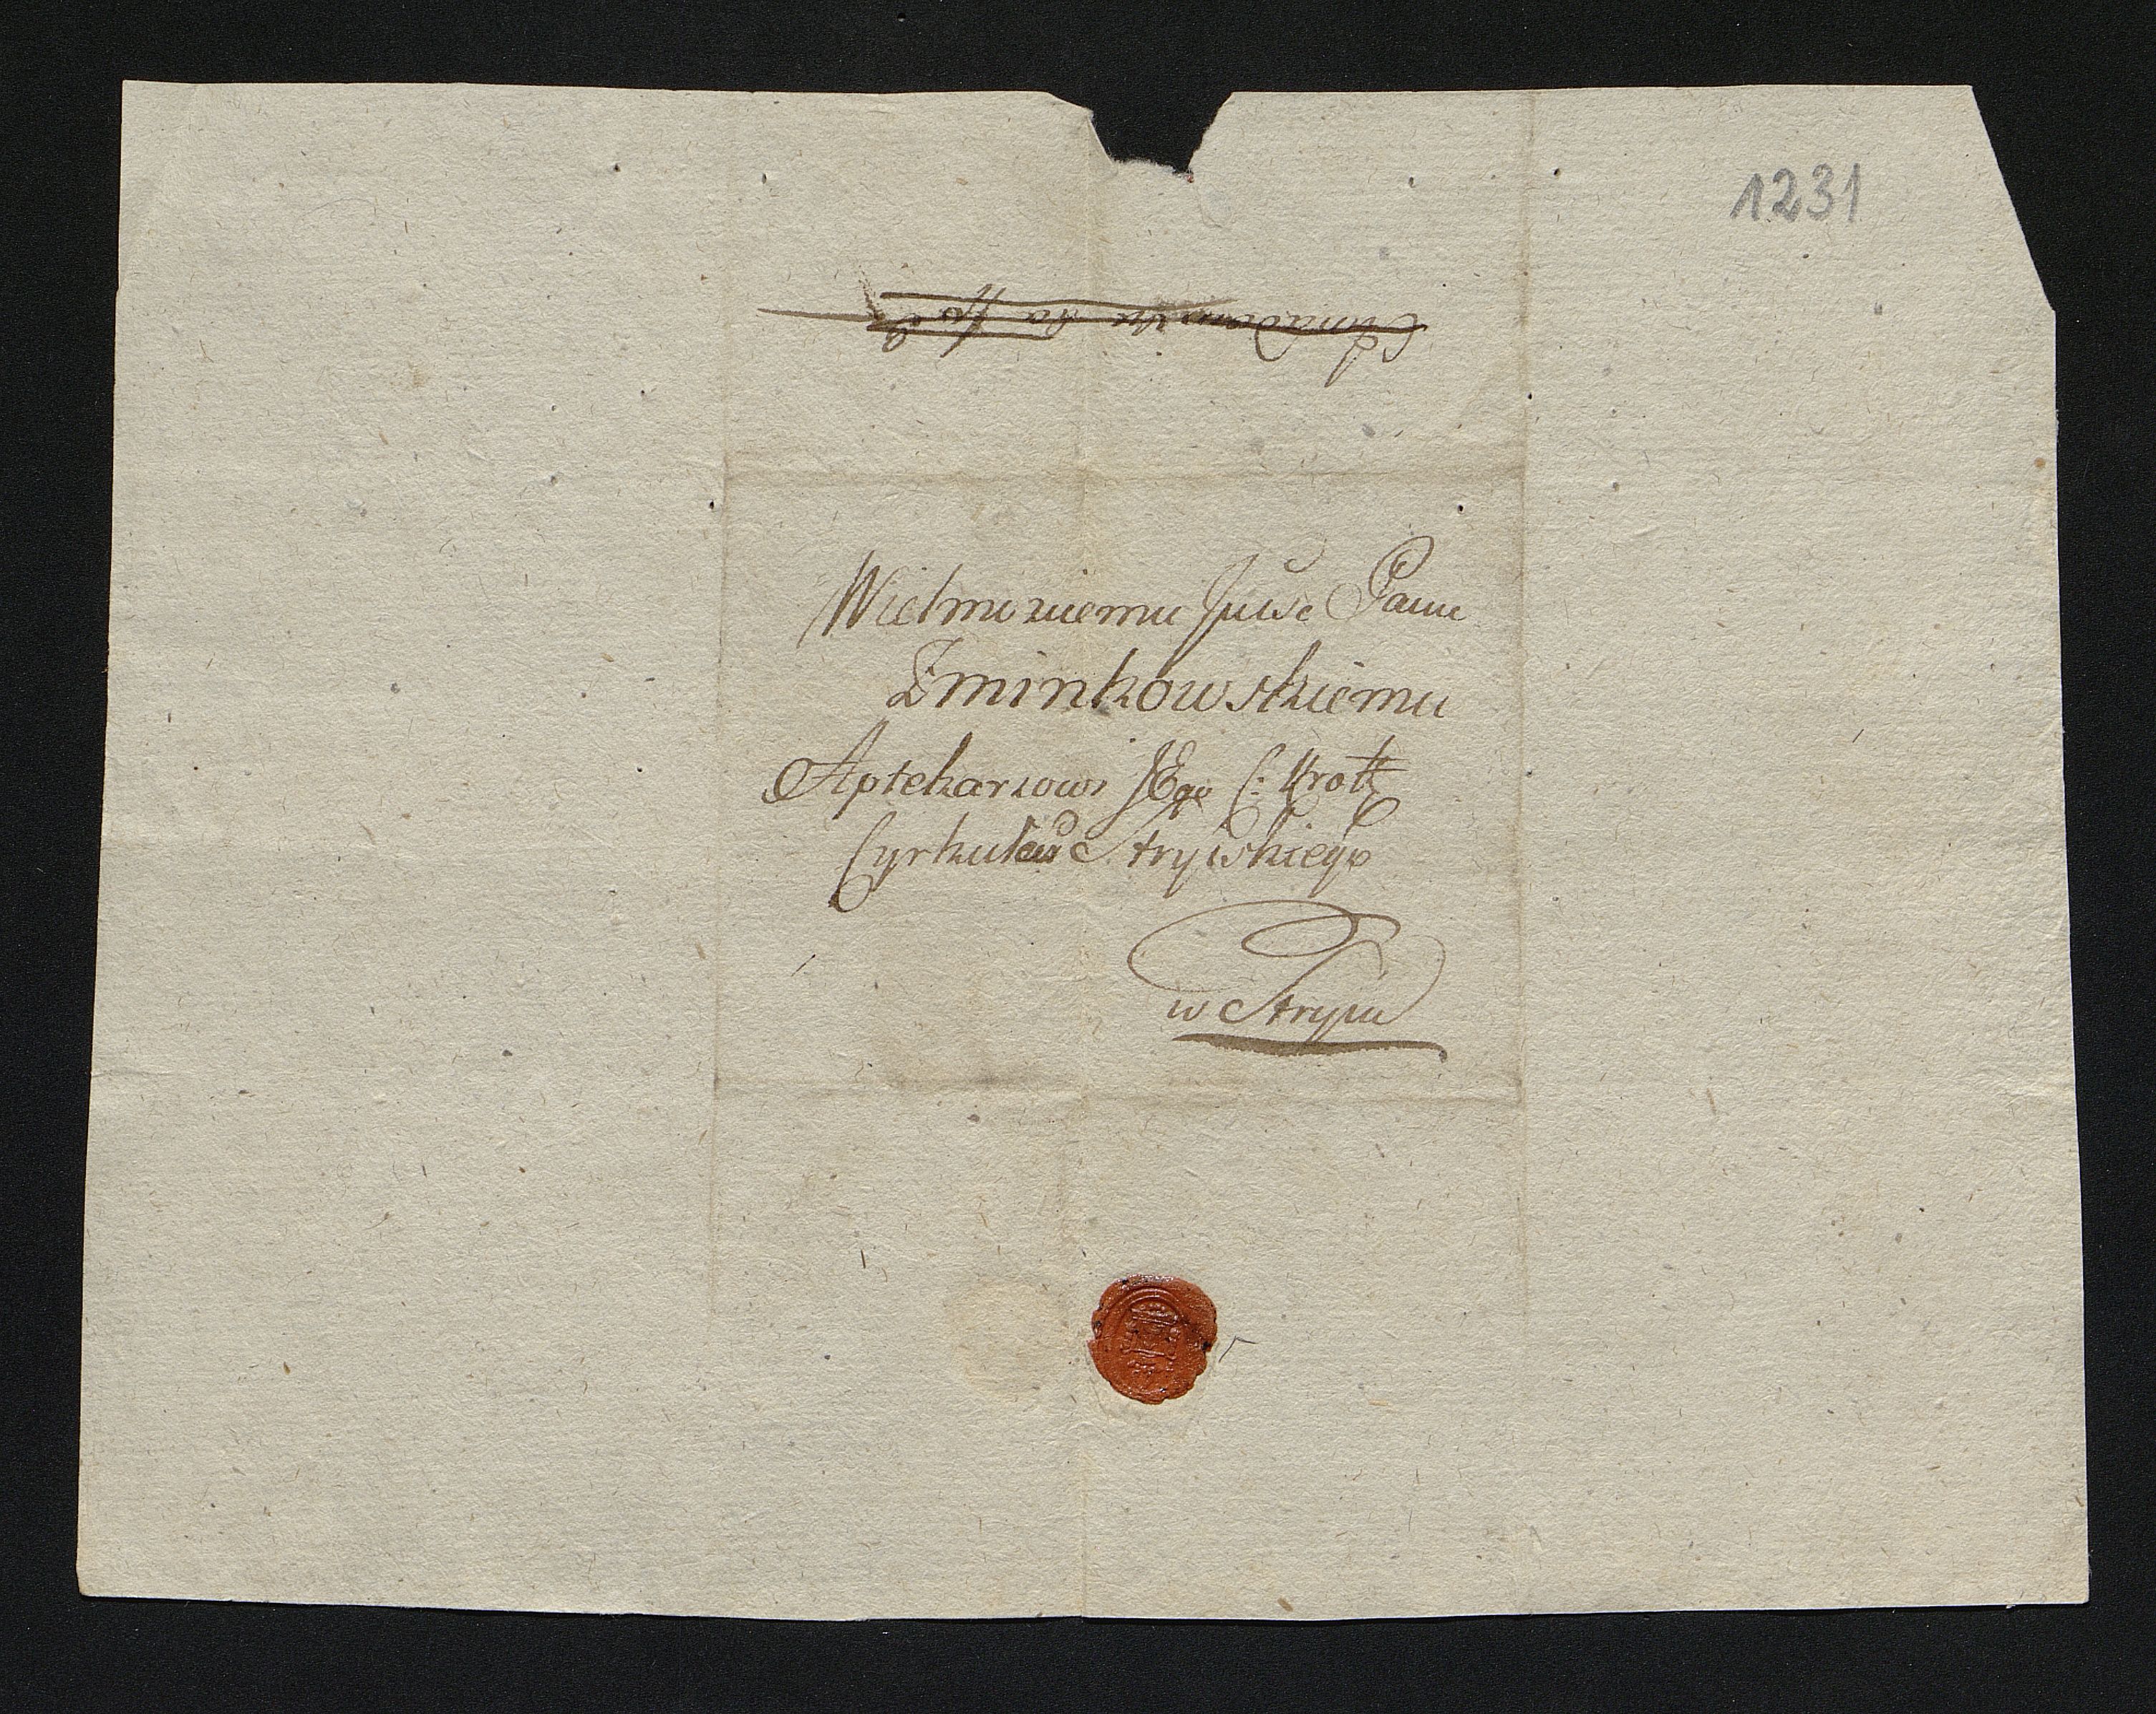 1231
Wielmoznemu Jmsc Panu
Zminkowskiemu
Aptekarzowi JEgo C: Kro
Cyrkułu Stryiskiego
w Stryiu